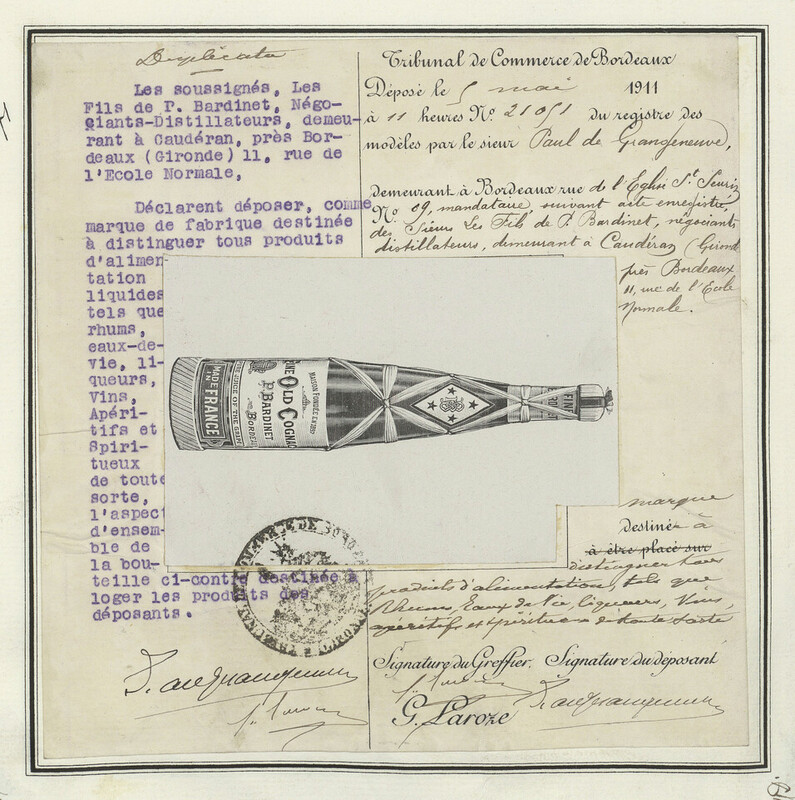 Duplicata
Les soussignés, Les
Fils de P. Bardinet, Négo-
ciants-Distillateurs, demeu-
rant à Caudéran, près Bor-
deaux (Gironde) 11, rue de
l'Ecole Normale,
Déclarent déposer, comme
marque de fabrique destinée
à distinguer tous produits
d'alimen-
tation
liquides
tels que
rhums,
eaux-de-
vie, li-
queurs,
Vins,
Apéri-
tifs et
Spiri-
tueux
de toute
sorte,
l'aspect
d'ensem-
ble de
la bou-
teille ci-contre destinée à
loger les produits des
déposants.
Tribunal de Commerce de Bordeaux
Déposé le 5 mai 1911
à 11 heures No. 21051 du registre des
modèles par le sieur Paul de Grangeneuve,
demeurant à Bordeaux rue de l'Eglise St. Seurin
No. 09, mandataire, suivant acte enregistré,
des Sieurs Les Fils de P. Bardinet, négociants
distillateurs, demeurant à Caudéran (Gironde
près Bordeaux
11, rue de l'Ecole
Normale.
MADE IN FRANCE
FINE OLD COGNAC
P. BARDINET
BORDEAUX
MAISON FONDÉE EN 1857
FINE
marque
destiné à
à être placé sur
distinguer tous
produits d'alimentation, tels que
Rhums, Eaux de Vie, liqueurs, Vins,
apéritifs et spiritueux de toute sorte
Signature du Greffier. Signature du déposant
G. Laroze